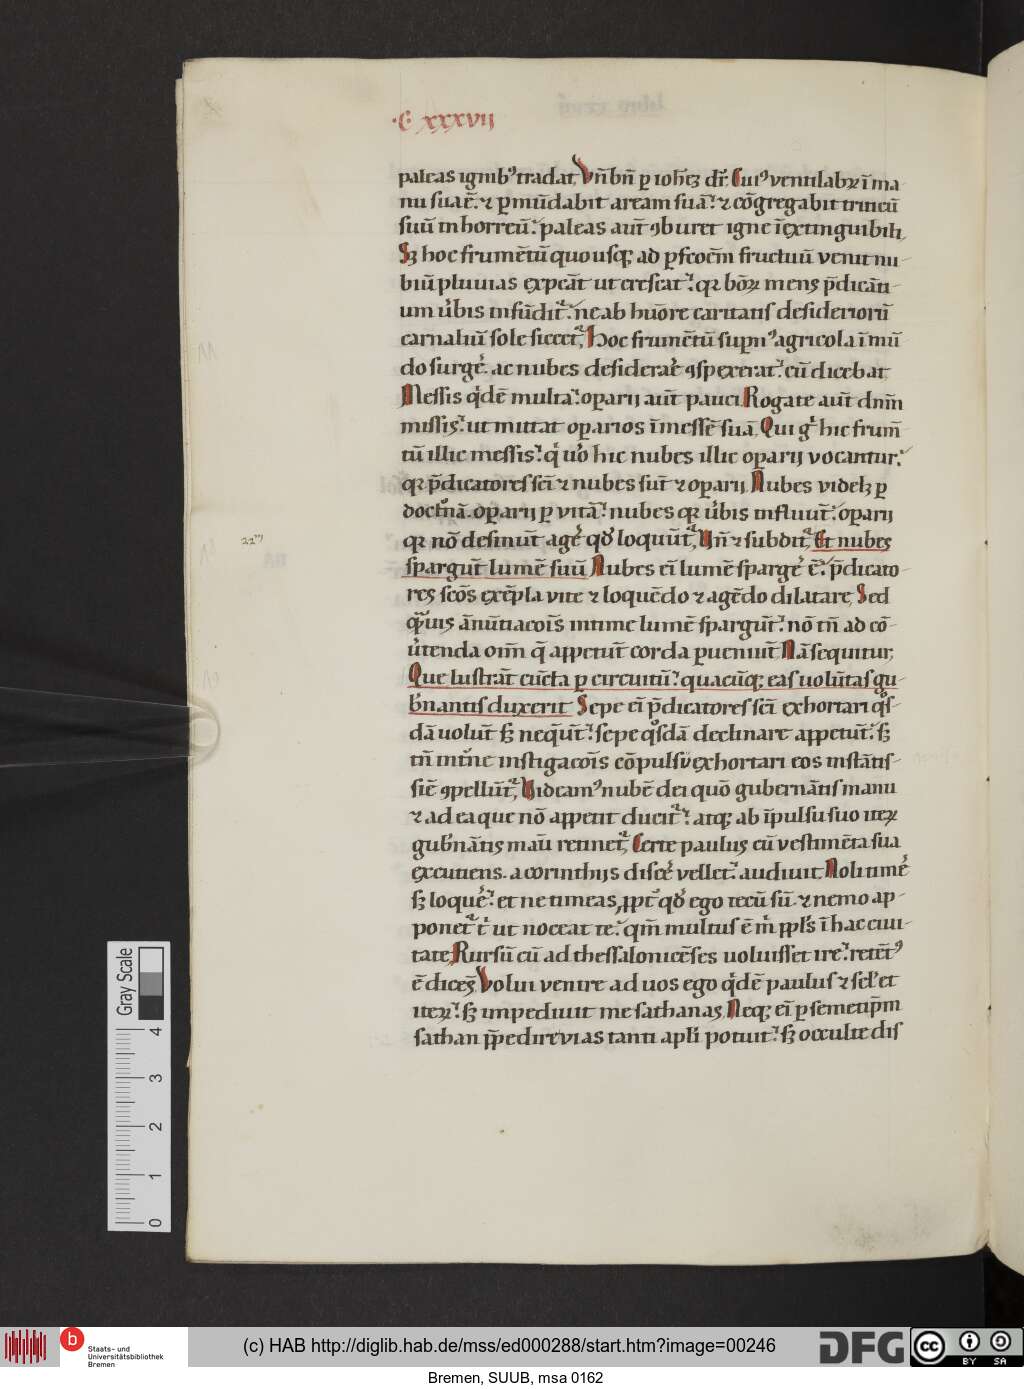 ·C xxxvij
paleas ignibꝰ tradat, Vn̄ bn̄ ꝑ ioh̄eꝫ dr̄. Cuiꝰ ventilabꝝ ī ma-
nu sua ē. ⁊ ꝑmūdabit aream suā. ⁊ cōgregabit triticū
suū in horreū. paleas aut̄ ꝯburet igne īextinguibili,
Sꝫ hoc frumētū quousqꝫ ad ꝑfcōem̄ fructuū venit nu-
biū pluuias expcāt ut crescat. qꝛ bōꝝ mens p̄dicāti-
um ūbis infūdit᷑. ne ab hūore caritatis desideriorū
carnaliū sole siccet᷑, Hoc frumētū suꝑnꝰ agricola ī mū-
do surgē. ac nubes desiderarē ꝯspexerat. cū dicebat
Messis qͥdē multa. oꝑarij aut̄ pauci. Rogate aut̄ dn̄m
missis. ut mittat oꝑarios ī messē suā, Qui gͦ hic frum̄-
tū illic messis. qͥ uͦo hic nubes illic oꝑarij vocantur.
qꝛ p̄dicatores sc̄i ⁊ nubes sūt ⁊ oꝑarij. Nubes videlꝫ ꝑ
doctͥnā. oꝑarij ꝑ vitā. nubes qꝛ ūbis influūt. oꝑarij
qꝛ nō desinūt agē qd̄ loquūt᷑, Vn̄ ⁊ subdit᷑, Et nubes
22ᵐ
spargūt lumē suū Nubes ei̅ lumē spargē ē. p̄dicato-
res sc̄os exēpla vite ⁊ loquēdo ⁊ agēdo dilatare, Sed
qͣuis ānūtiacōis intime lumē spargūt. nō tn̄ ad cō-
ūtenda om̄ q̄ appetūt corda ꝑueniūt. Nā sequitur,
Que lustrāt cūcta ꝑ circuitū. quacūqꝫ eas volūtas gu-
b̄nantis duxerit Sepe ei̅ p̄dicatores sc̄i exhortari qͦs-
dā uolūt sꝫ nequ̅ūt. sepe qͦsdā declinare appetūt. sꝫ
tn̄ intͥne instigacōis cōpulsu exhortari eos instātis-
sie̅ ꝯpellūt᷑, Videamꝰ nubē dei quō gubernātis manu
⁊ ad ea que nō appetit ducit᷑. atqꝫ ab īpulsu suo iteꝝ
gub̄nātis manū retinet᷑, Certe paulus cū vestimēta sua
excutiens. a corinthijs discē vellet. audiuit Noli timē
sꝫ loquē. et ne timeas, ꝓpt̄ qd̄ ego tecū sū. ⁊ nemo ap-
ponet᷑ t̄ ut noceat te. qm̄ multus ē m̄ ppl̄s ī hac ciui-
tate, Rursū cū ad thessalonicēses uoluisset ire. retētꝰ
ē dicēs, Volui venire ad uos ego qͥdē paulus ⁊ sel̄ et
iteꝝ. sꝫ impediuit me sathanas, Neqꝫ ei̅ ꝑ semetip̄m
sathan p̄pedire vias tanti apl̄i potuit. sꝫ occulte dis
Gray Scale
4
3
2
1
0
b
Staats- und
Universitätsbibliothek
Bremen
(c) HAB http://diglib.hab.de/mss/ed000288/start.htm?image=00246
DFG
cc
BY SA
Bremen, SUUB, msa 0162